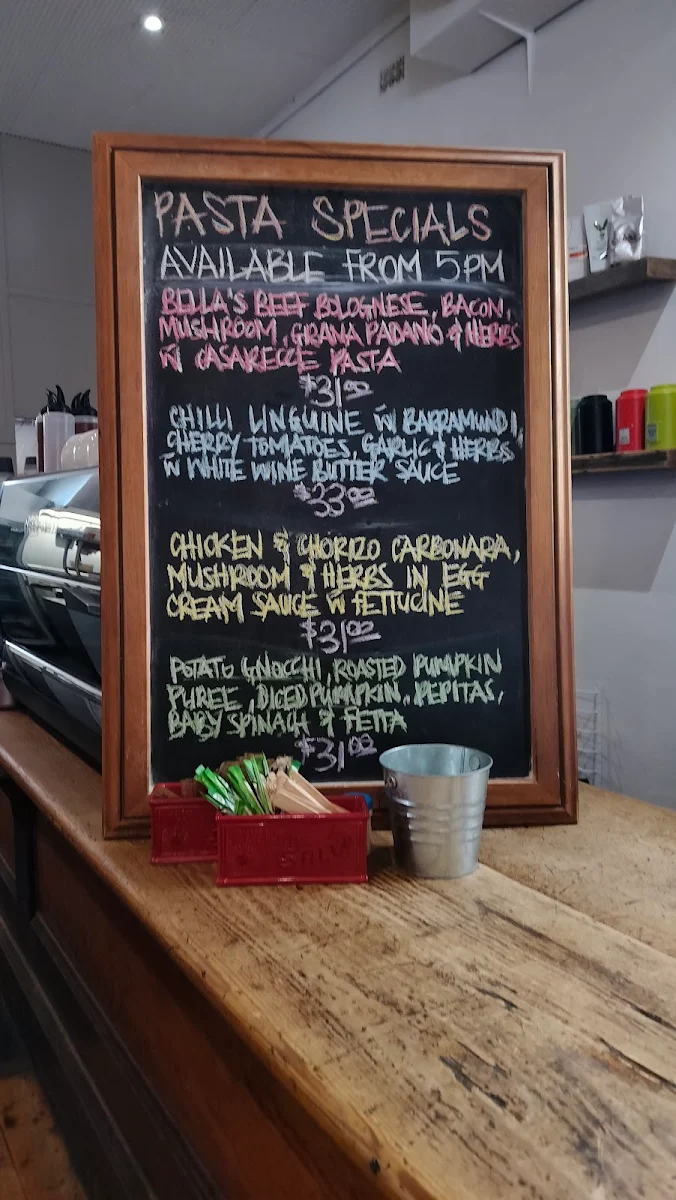 PASTA SPECIALS
AVAILABLE FROM 5PM
BELLA'S BEEF BOLOGNESE, BACON,
MUSHROOM, GRANA PADANO & HERBS
W CASARECCE PASTA
$31.00
CHILLI LINGUINE W BARRAMUNDI,
CHERRY TOMATOES, GARLIC & HERBS
W WHITE WINE BUTTER SAUCE
$33.00
CHICKEN & CHORIZO CARBONARA,
MUSHROOM & HERBS IN EGG
CREAM SAUCE W FETTUCINE
$31.00
POTATO GNOCCHI, ROASTED PUMPKIN
PUREE, DICED PUMPKIN, PEPITAS,
BABY SPINACH & FETTA
$31.00